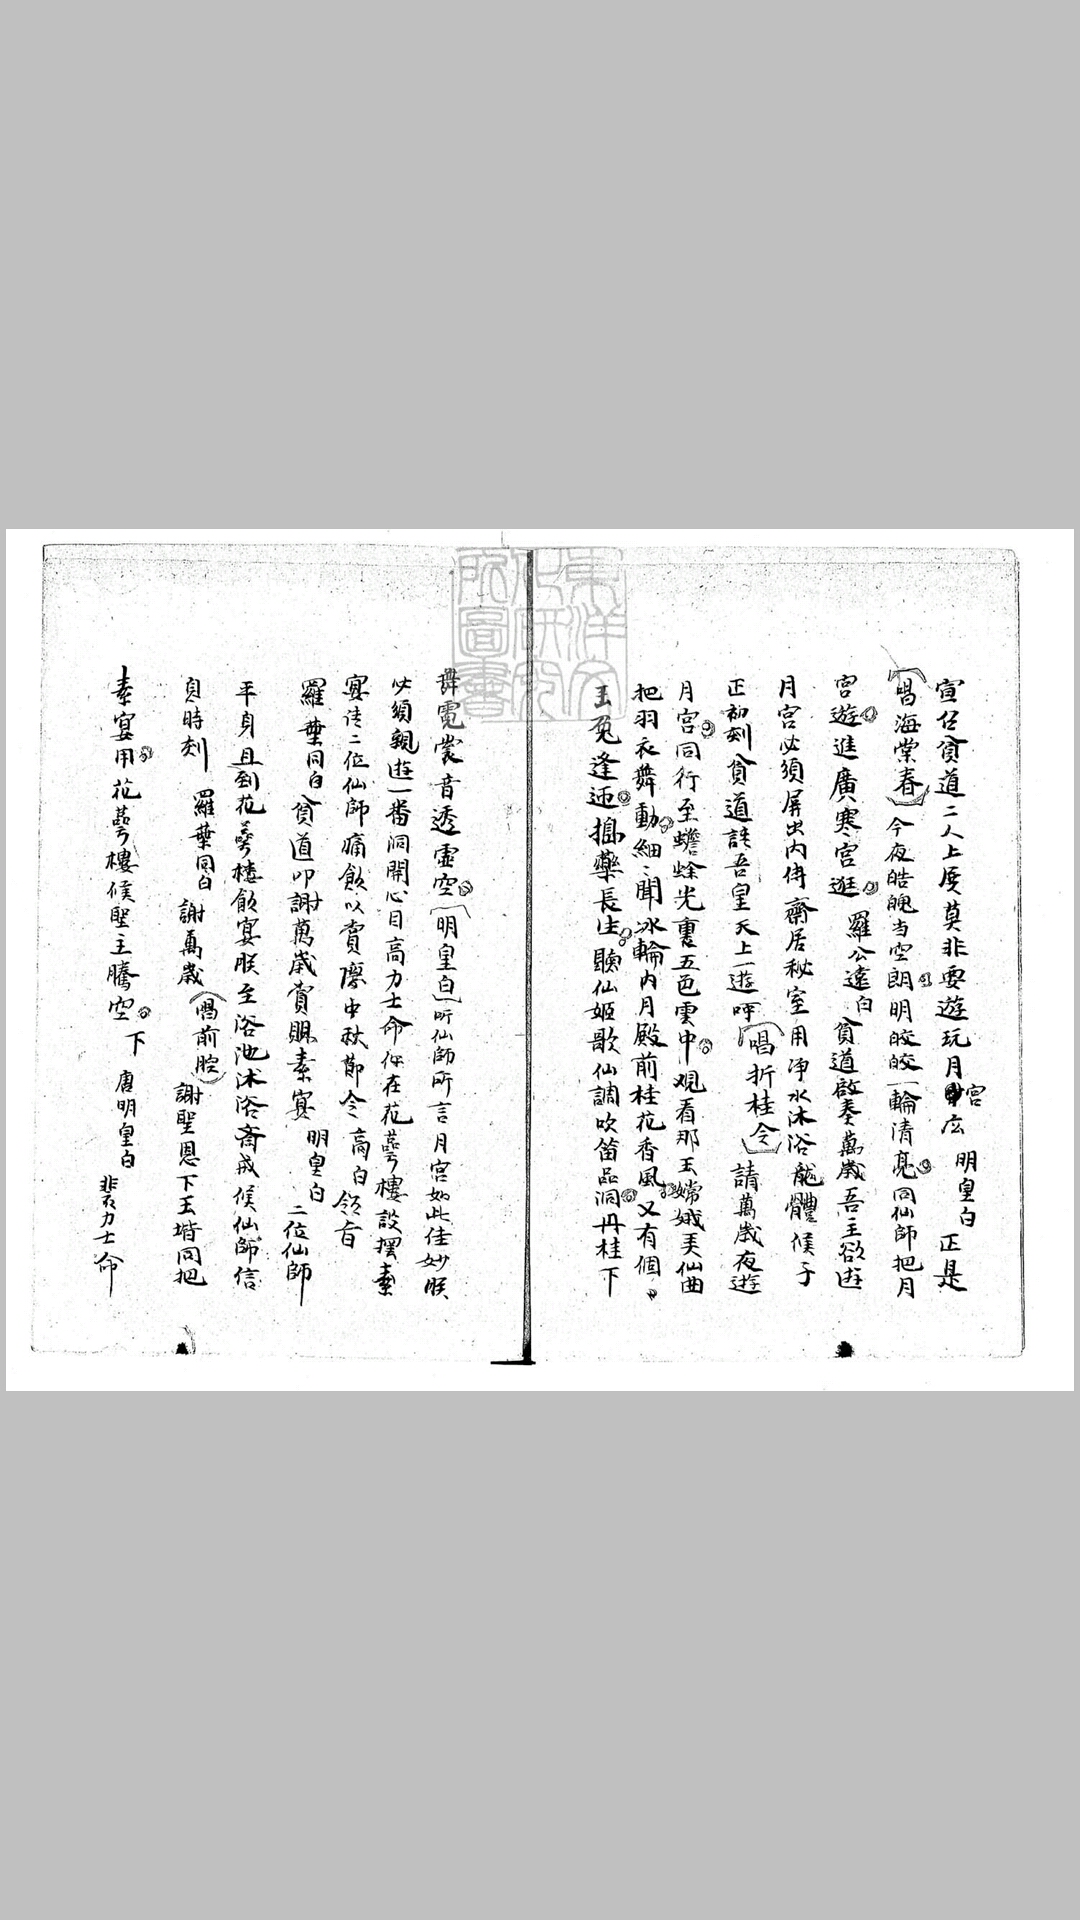 宣召貧道二人上殿莫非要遊玩月宮広 明皇白 正是
唱海棠春 今夜皓魄当空朗明皎皎一輪清亮同仙師把月
宮遊進廣寒宮逛 羅公遠白 貧道啟奏萬歲吾主欲逛
月宮必須屏出內侍齋居秘室用净水沐浴龍體候子
正初刻貧道請吾皇天上一遊呼 唱折桂令 請萬歲夜遊
月宮同行至蟾蜍光裏五色雲中观看那玉嫦娥美仙曲
把羽衣舞動細〻聞冰輪内月殿前桂花香風又有個〻
玉兔逢迊搗藥長生聽仙姬歌仙調吹笛品洞丹桂下
舞霓裳音透虛空 明皇白 听仙師所言月宮如此佳妙朕
必須親遊一番洞開心目高力士命你在花萼樓設擺素
宴请二位仙師痛飲以賞慶中秋節令 高白 領旨
羅葉同白 貧道叩謝萬歲賞賜素宴 明皇白 二位仙師
平身且到花萼樓飲宴朕至浴池沐浴斎戒候仙師信
息時刻 羅葉同白 謝萬歲 唱前腔 謝聖恩下玉堦同把
素宴用花萼樓候聖主騰空 下 唐明皇白 力士命
東洋文化研究所圖書